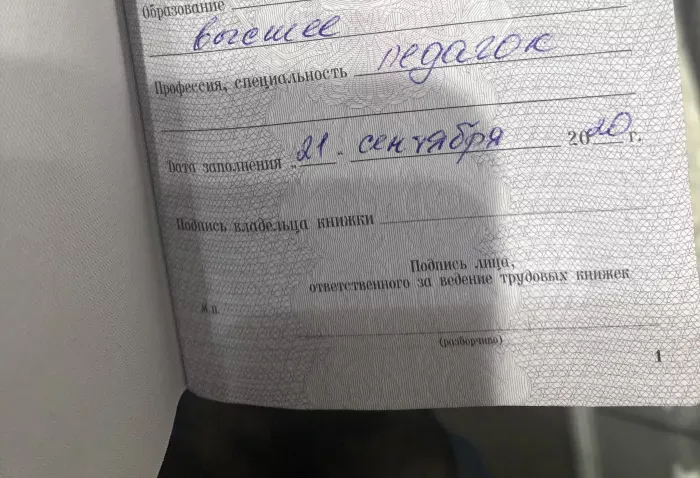 Образование
высшее
Профессия, специальность педагок
Дата заполнения „21 - сентября 2020 г.
Подпись владельца книжки
Подпись лица,
ответственного за ведение трудовых книжек
М.п.
(разборчиво)
1